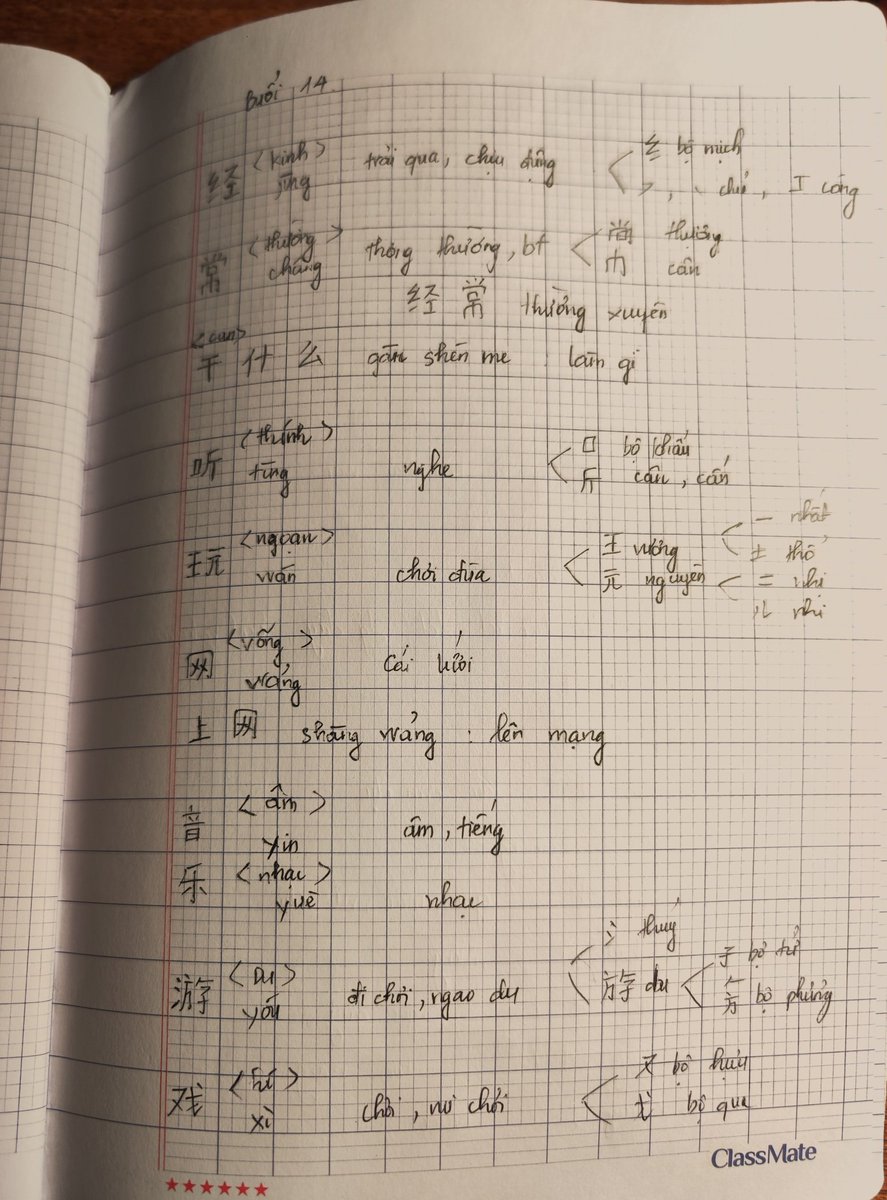 Buổi 14.
经 <kinh> jīng trải qua, chịu đựng < 纟 bộ mịch
, 工 công
常 <thường> cháng thông thường, bt < 尚 thượng
巾 cân
经常 thường xuyên
<can>
干什么 gàn shén me : làm gì
听 <thính> tīng nghe < 口 bộ khẩu
斤 cân, cấn
玩 <ngoạn> wán chơi đùa < 王 vương < 一 nhất
土 thổ
元 nguyên < 二 nhị
儿 nhi
网 <võng> wǎng cái lưới
上网 shàng wǎng : lên mạng
音 <âm> yīn âm, tiếng
乐 <nhạc> yuè nhạc
游 <Du> yóu đi chơi, ngao du < 氵 thuỷ
斿 du < 子 bộ tử
方 bộ phương
戏 <hí> xì chơi, nơi chơi < 又 bộ hựu
戈 bộ qua
ClassMate